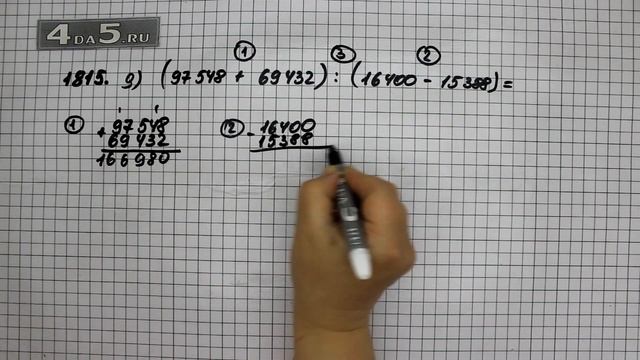 4DA5.RU
① ③ ②
1815. д) (97548 + 69432) : (16400 - 15388) =
① + 97548
69432
166980
② - 16400
15388